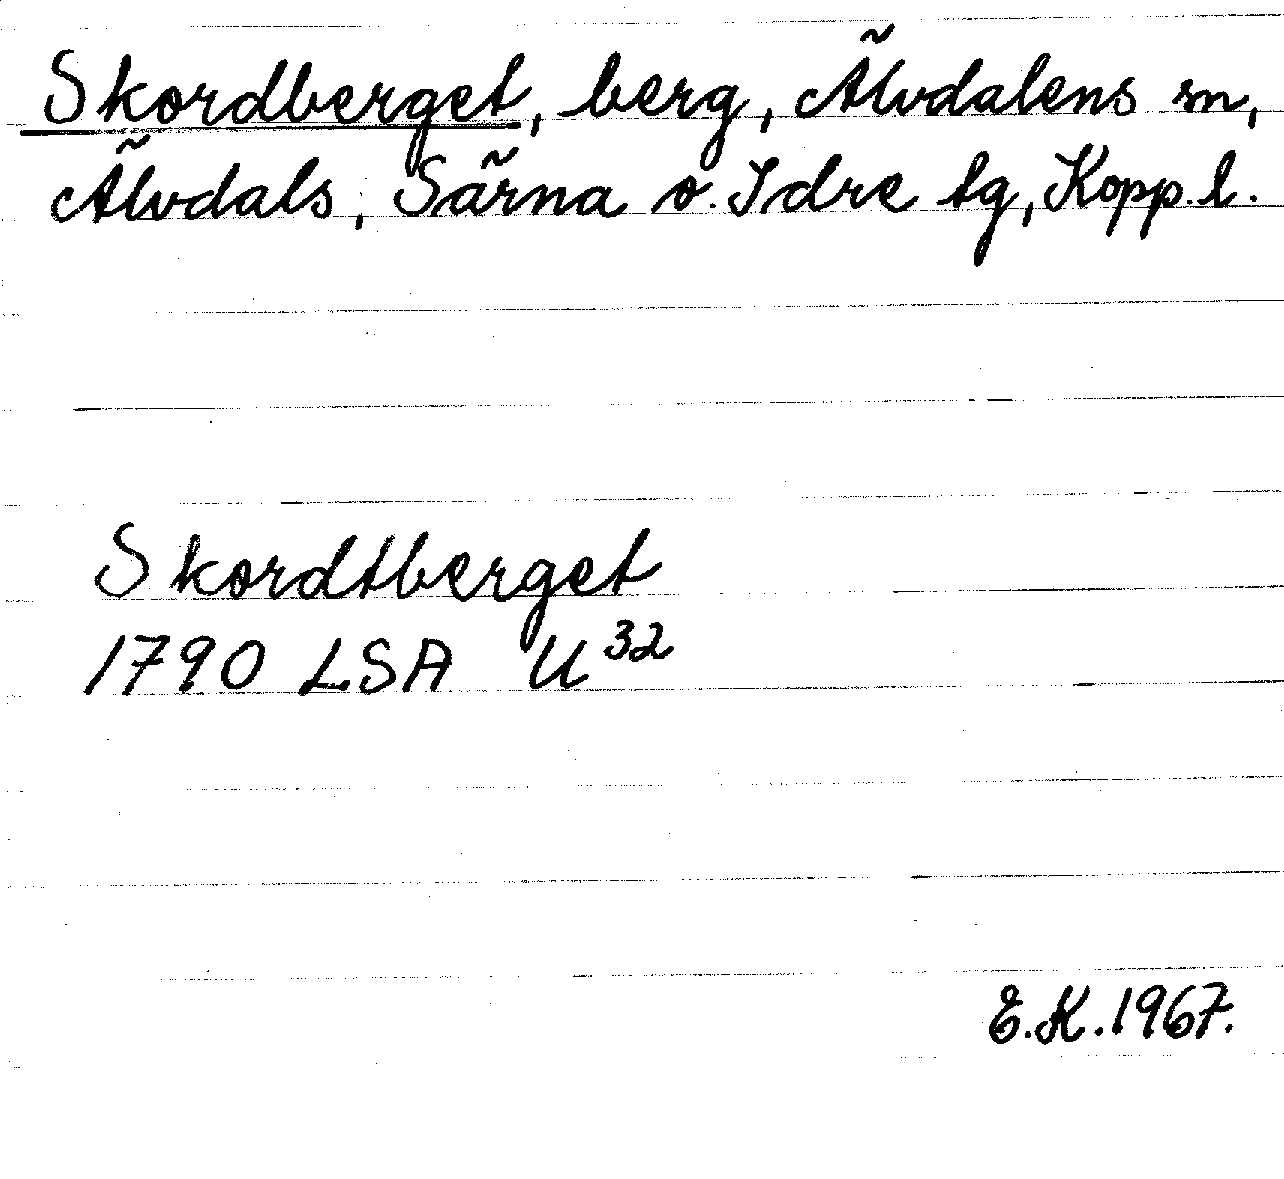 Skordberget, berg, Älvdalens sn,
Älvdals, Särna o. Idre tg, Kopp. l.
Skordtberget
1790 LSA U³²
E.K. 1967.